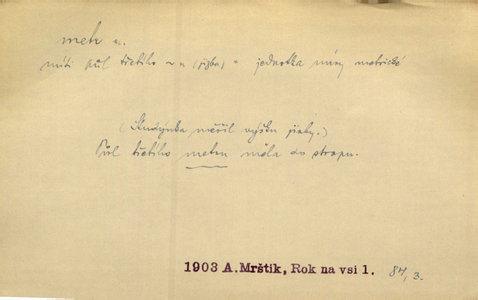 metr m.
míti půl třetího ~ u (jizba) = jednotka míry metrické
(Studýnka měřil výšku jizby.)
Půl třetího metru měla do stropu.
1903 A. Mrštík, Rok na vsi 1. 87, 3.